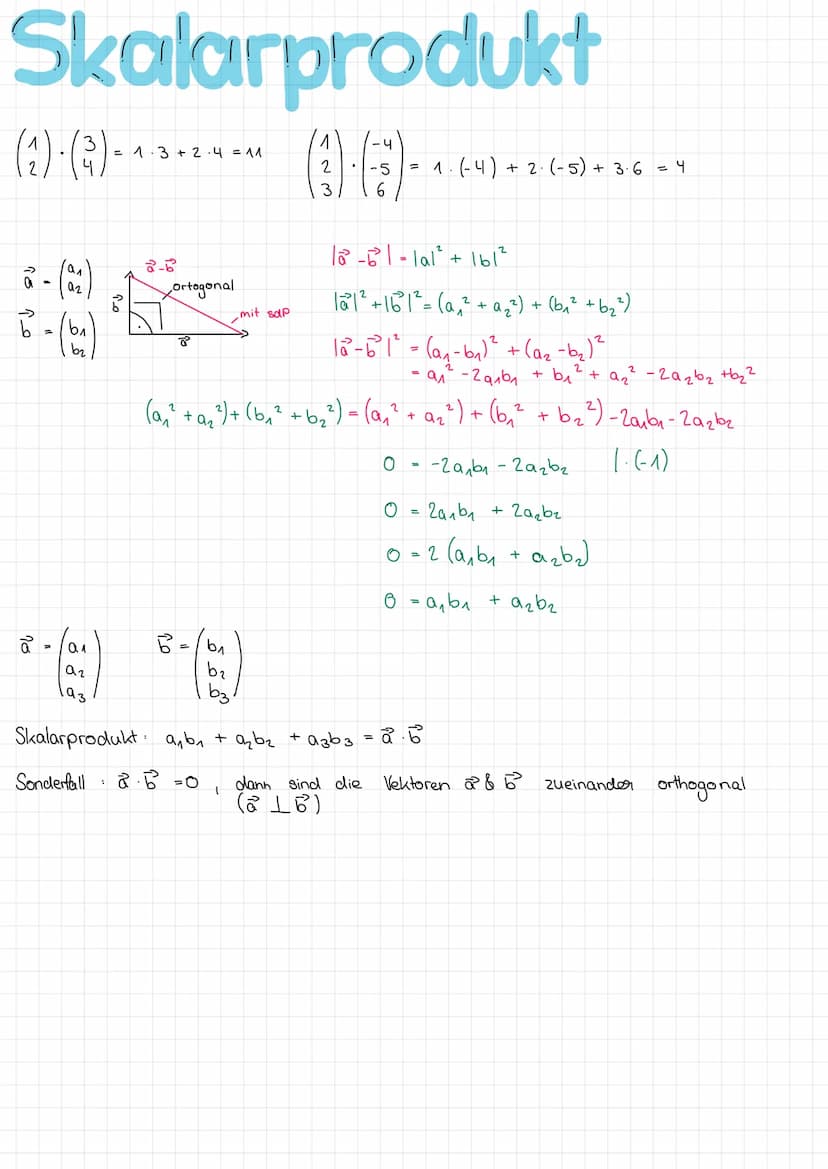 Skalarprodukt
(1 2) · (3 4) = 1·3 + 2·4 = 11
(1 2 3) · (-4 -5 6) = 1·(-4) + 2·(-5) + 3·6 = 4
a⃗ = (a₁ a₂)
b⃗ = (b₁ b₂)
a⃗-b⃗
ortogonal
b⃗
mit
a⃗
|a⃗-b⃗| = |a|² + |b|²
|a⃗|² + |b⃗|² = (a₁² + a₂²) + (b₁² + b₂²)
|a⃗-b⃗|² = (a₁-b₁)² + (a₂-b₂)²
= a₁² - 2a₁b₁ + b₁² + a₂² - 2a₂b₂ + b₂²
(a₁² + a₂²) + (b₁² + b₂²) = (a₁² + a₂²) + (b₁² + b₂²) - 2a₁b₁ - 2a₂b₂
0 = -2a₁b₁ - 2a₂b₂ |·(-1)
0 = 2a₁b₁ + 2a₂b₂
0 = 2(a₁b₁ + a₂b₂)
0 = a₁b₁ + a₂b₂
a⃗ = (a₁ a₂ a₃) b⃗ = (b₁ b₂ b₃)
Skalarprodukt: a₁b₁ + a₂b₂ + a₃b₃ = a⃗·b⃗
Sonderfall: a⃗·b⃗ = 0, dann sind die Vektoren a⃗ & b⃗ zueinander orthogonal
(a⃗ ⊥ b⃗)